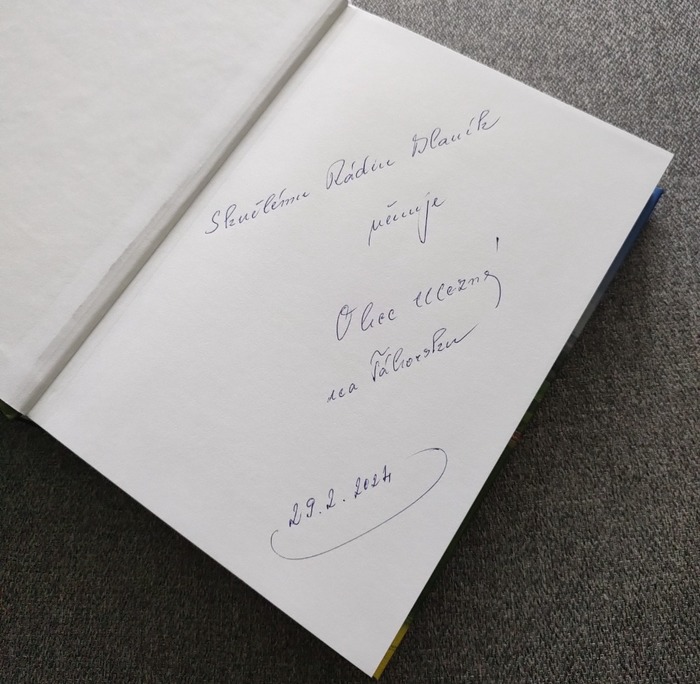 Skvělému Rádiu Blaník
věnuje
Obec Mezná
na Táborsku
29.2.2024